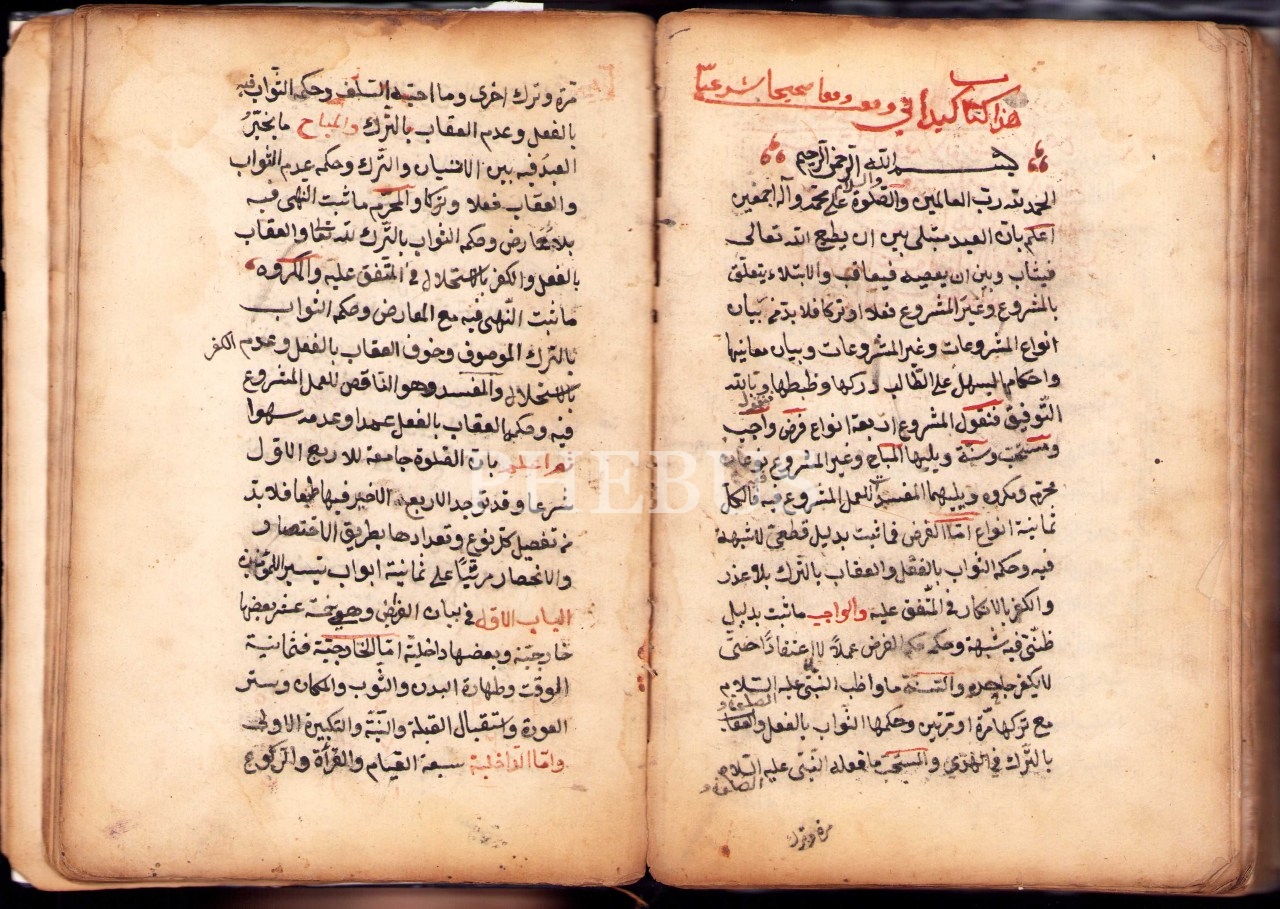 هذا كتاب كيداني وقف وقفا صحيحا شرعيا
بسم الله الرحمن الرحيم
الحمد لله رب العالمين والصلوة والسلام على محمد وآله اجمعين
اعلم بان العبد مبتلى بين ان يطيع الله تعالى
فيثاب وبين ان يعصيه فيعاقب والابتلاء يتعلق
بالمشروع وغير المشروع فعلا او تركا فلا بد من بيان
انواع المشروعات وغير المشروعات وبيان معانيها
واحكامها ليسهل على الطالب دركها وضبطها وبالله
التوفيق فنقول المشروع اربعة انواع فرض واجب
ومستحب وسنة ويليها المباح وغير المشروع نوعان
محرم ومكروه ويليهما المفسد للعمل المشروع فيه فالكل
ثمانية انواع اما الفرض فما ثبت بدليل قطعي لا شبهة
فيه وحكمه الثواب بالفعل والعقاب بالترك بلا عذر
والكفر بالانكار في المتفق عليه والواجب ما ثبت بدليل
ظني فيه شبهة وحكمه حكم الفرض عملا لا اعتقادا حتى
لا يكفر جاحده والسنة ما واظب النبي عليه السلام
مع تركها مرة او مرتين وحكمها الثواب بالفعل والعقاب
بالترك في الهدي والمستحب ما فعله النبي عليه السلام
مرة وترك
مرة وترك اخرى وما احبه السلف وحكمه الثواب فيه
بالفعل وعدم العقاب بالترك والمباح ما يخير
العبد فيه بين الاتيان والترك وحكمه عدم الثواب
والعقاب فعلا وتركا والمحرم ما ثبت النهى فيه
بلا معارض وحكمه الثواب بالترك لله تعالى والعقاب
بالفعل والكفر بالاستحلال في المتفق عليه والمكروه
ما ثبت النهى فيه مع المعارض وحكمه الثواب
بالترك الموصوف وخوف العقاب بالفعل وعدم الكفر
بالاستحلال والمفسد وهو الناقض للعمل المشروع
فيه وحكمه العقاب بالفعل عمدا وعدمه سهوا
ثم اعلم بان الصلوة جامعة للاربع الاول
شرعا وقد توجد الاربعة الاخير فيها طبعا فلا بد
من تفصيل كل نوع وتعدادها بطريق الاختصار
والانحصار مرتبا على ثمانية ابواب تيسيرا للمؤمنين
الباب الاول في بيان الفرائض وهي خمسة عشر بعضها
خارجية وبعضها داخلية اما الخارجية فثمانية
الوقت وطهارة البدن والثوب والمكان وستر
العورة واستقبال القبلة والنية والتكبيرة الاولى
واما الداخلية سبعة القيام والقرأة والركوع
PHEBUS